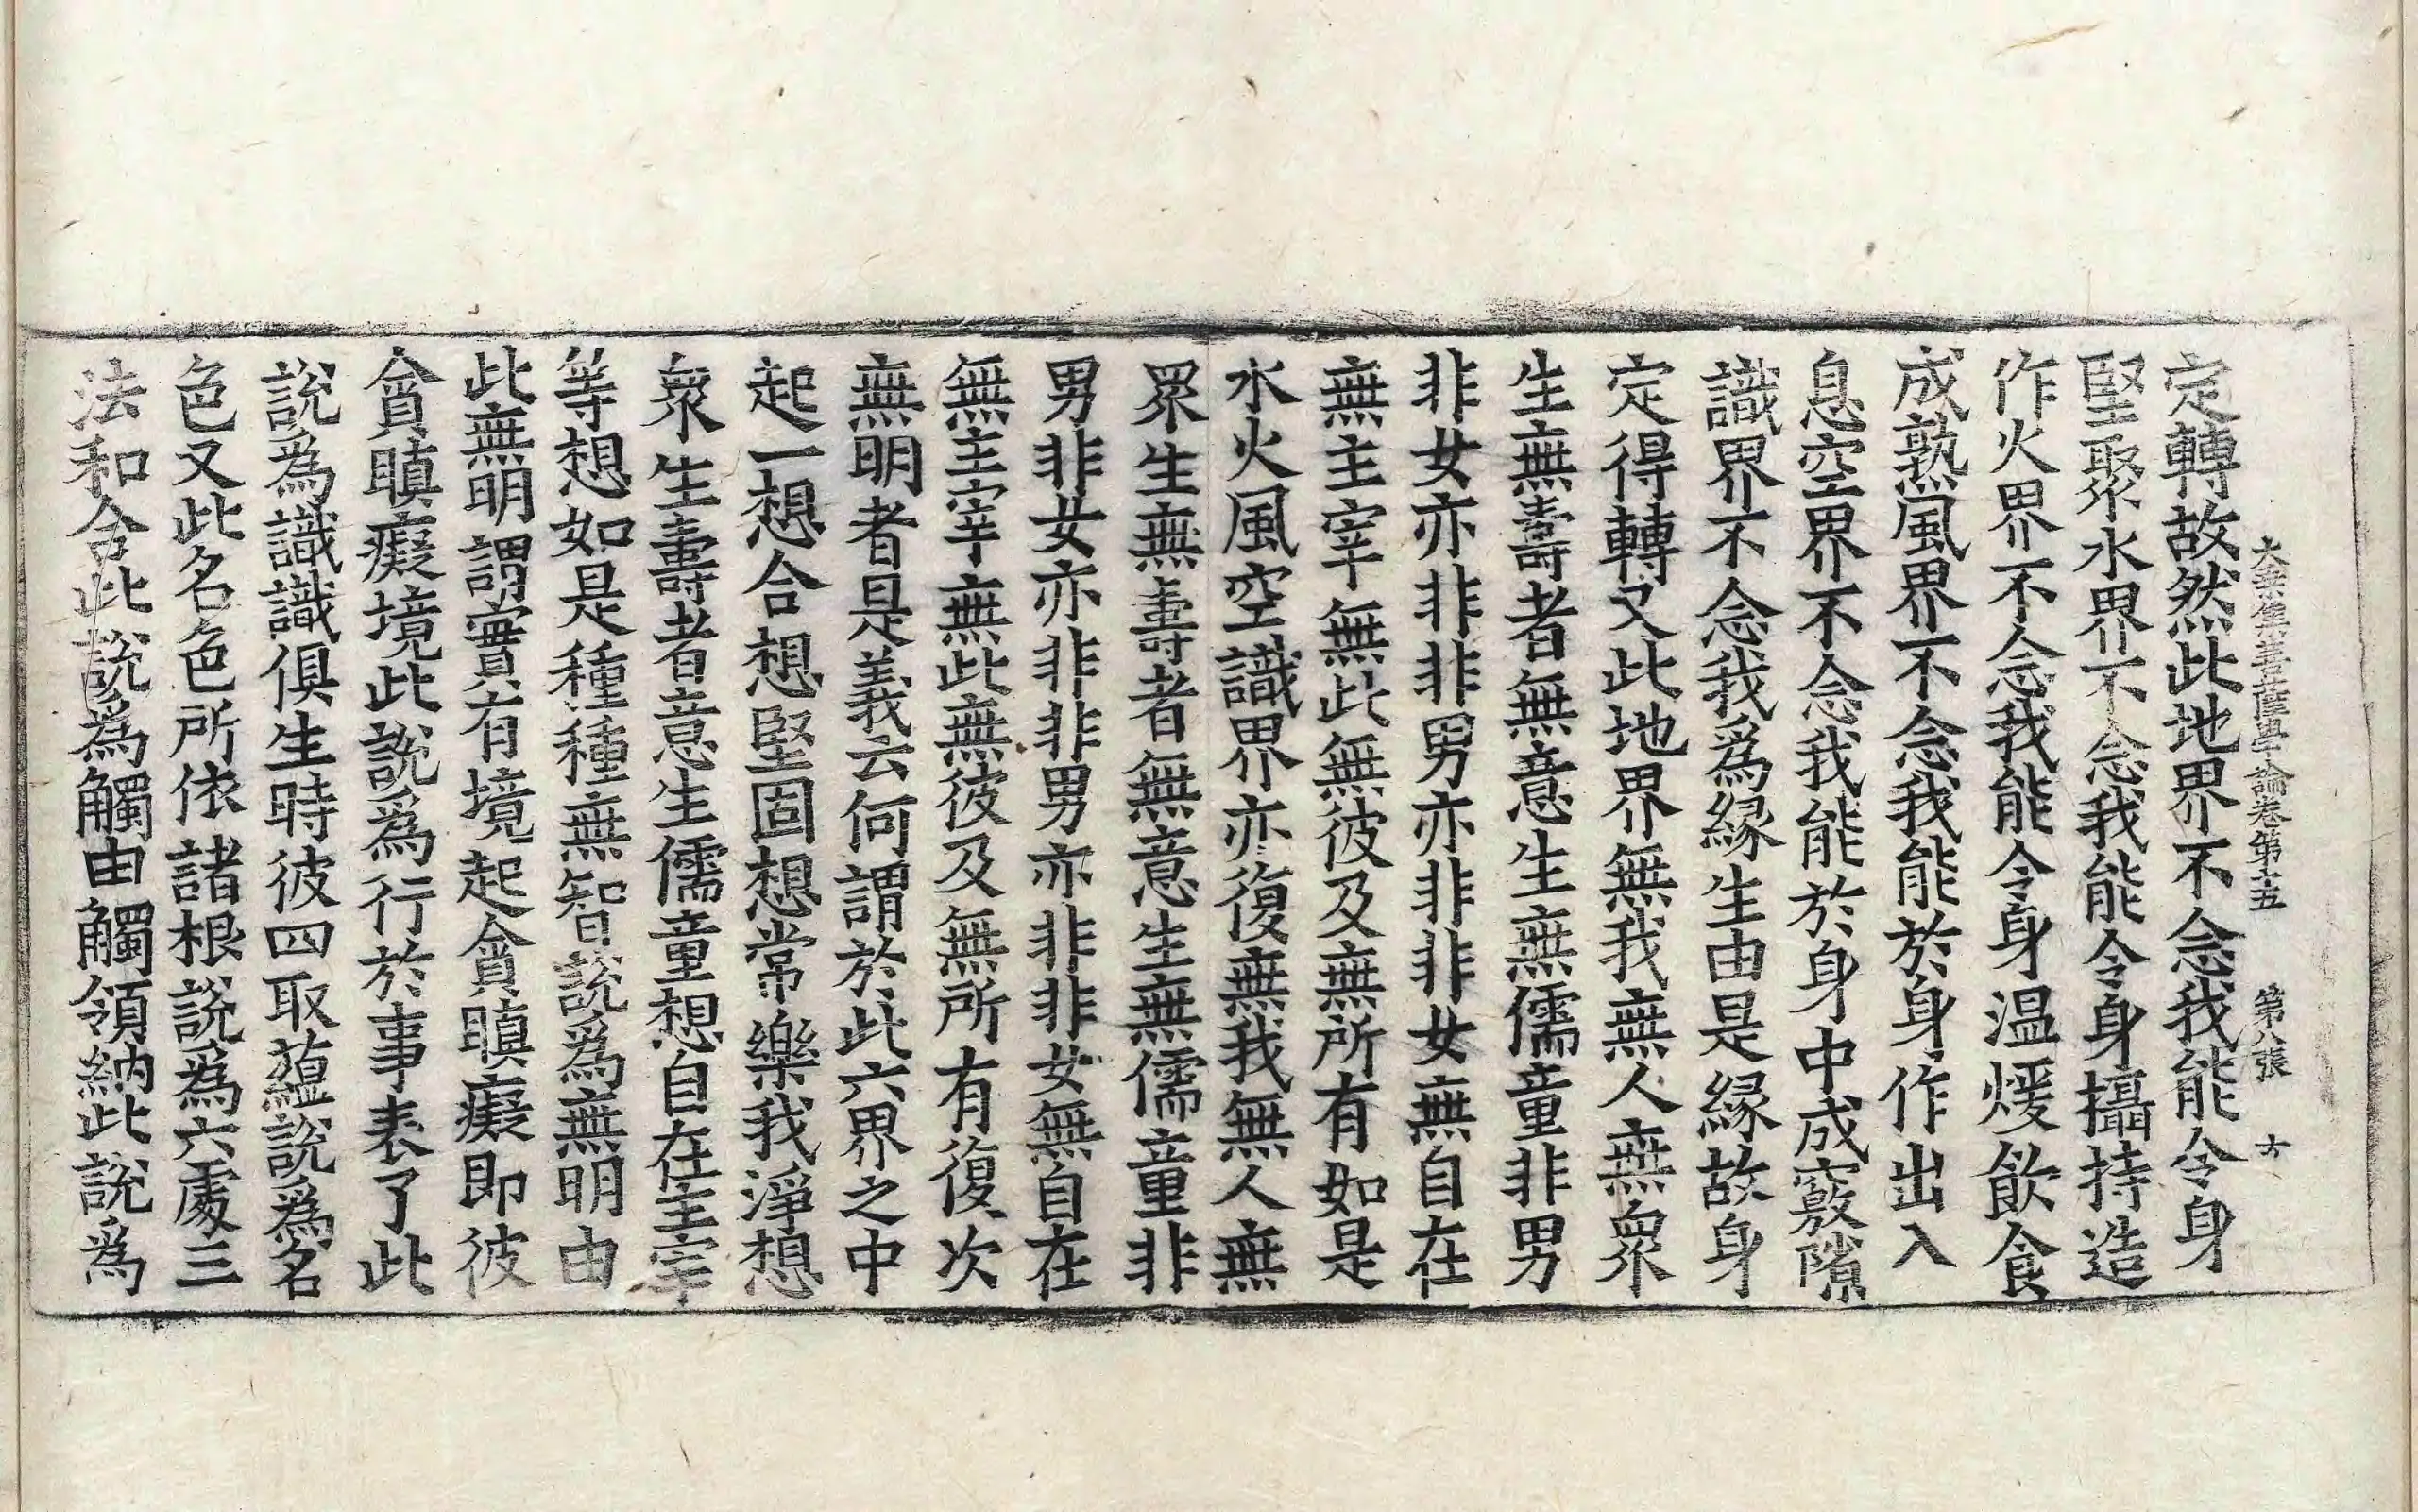 大乘集菩薩學論卷第十五 第八張 㐲
定轉故然此地界不念我能令身
堅聚水界不念我能令身攝持造
作火界不念我能令身温煖飲食
成熟風界不念我能於身作出入
息空界不念我能於身中成竅隙
識界不念我爲緣生由是緣故身
定得轉又此地界無我無人無衆
生無壽者無意生無儒童非男
非女亦非非男亦非非女無自在
無主宰無此無彼及無所有如是
水火風空識界亦復無我無人無
眾生無壽者無意生無儒童非
男非女亦非非男亦非非女無自在
無主宰無此無彼及無所有復次
無明者是義云何謂於此六界之中
起一想合想堅固想常樂我淨想
衆生壽者意生儒童想自在主宰
等想如是種種無智說爲無明由
此無明謂實有境起貪瞋癡即彼
貪瞋癡境此說爲行於事表了此
說爲識識俱生時彼四取蘊說爲名
色又此名色所依諸根說爲六處三
法和合此說爲觸由觸領納此說爲